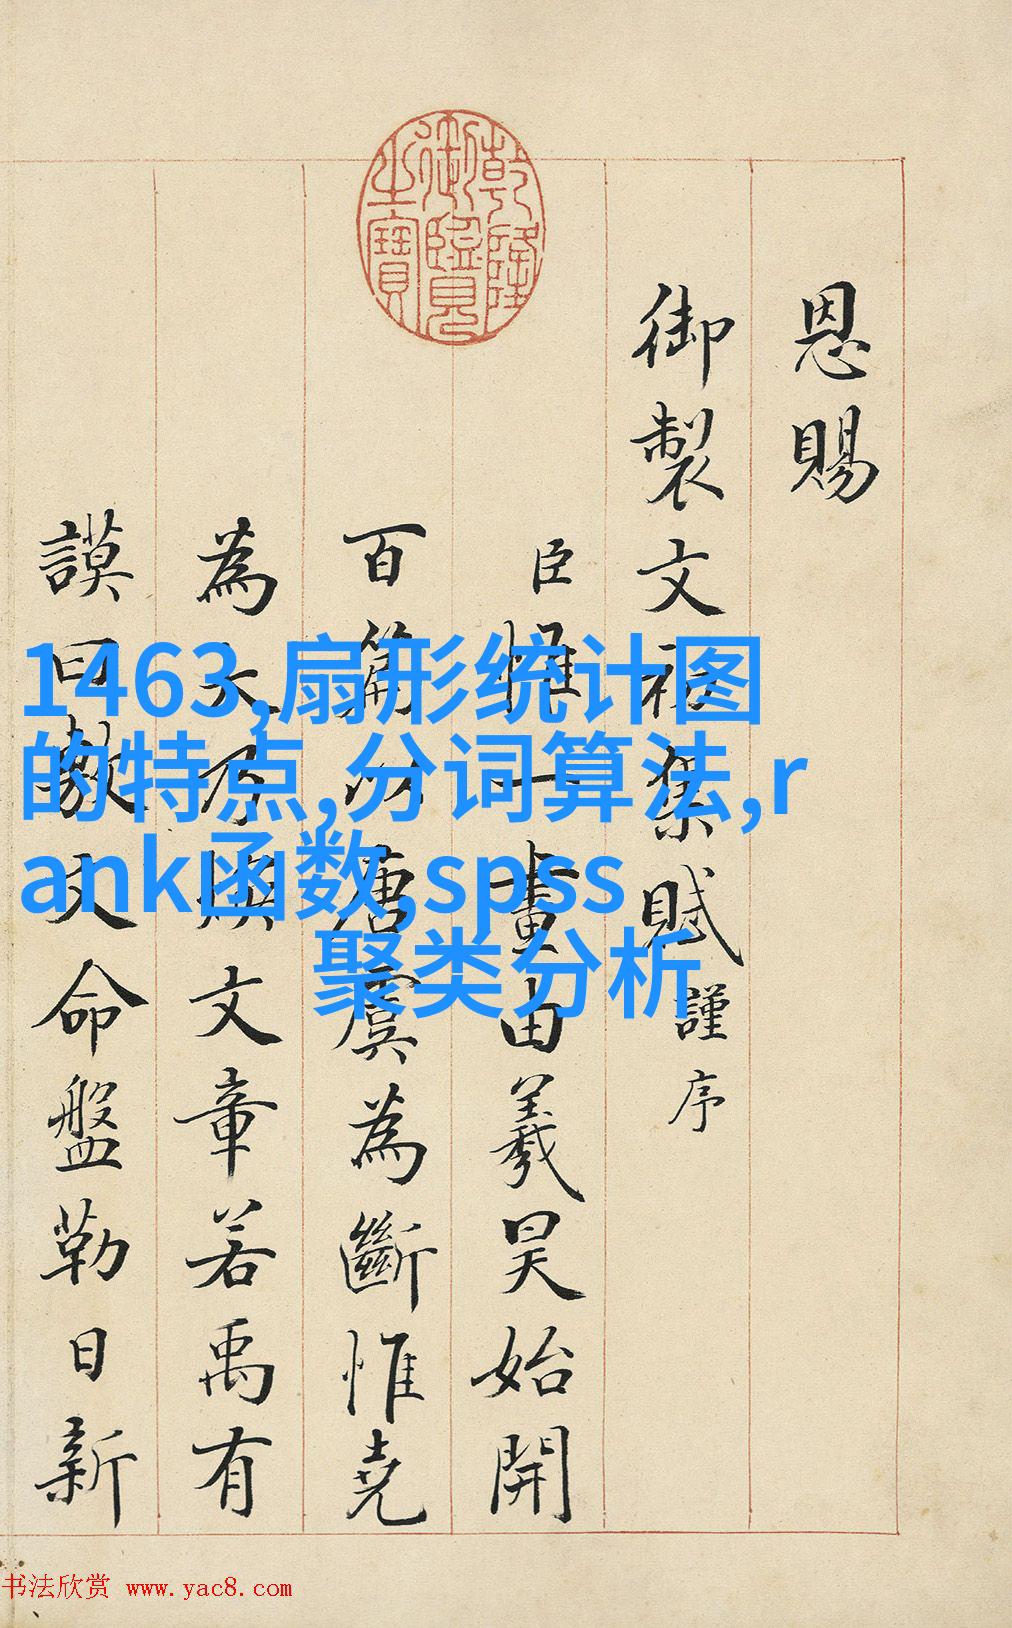 恩賜
御製文初集賦謹序
臣惟一畫由羲昊始開
百篇以唐虞為斷惟堯
為大乃煥文章若禹有
謨曰敷文命盤勒日新
乾隆
御覽
之寶
1463,扇形统计图
的特点,分词算法,r
ank函数,spss
聚类分析
书法欣赏 www.yac8.com